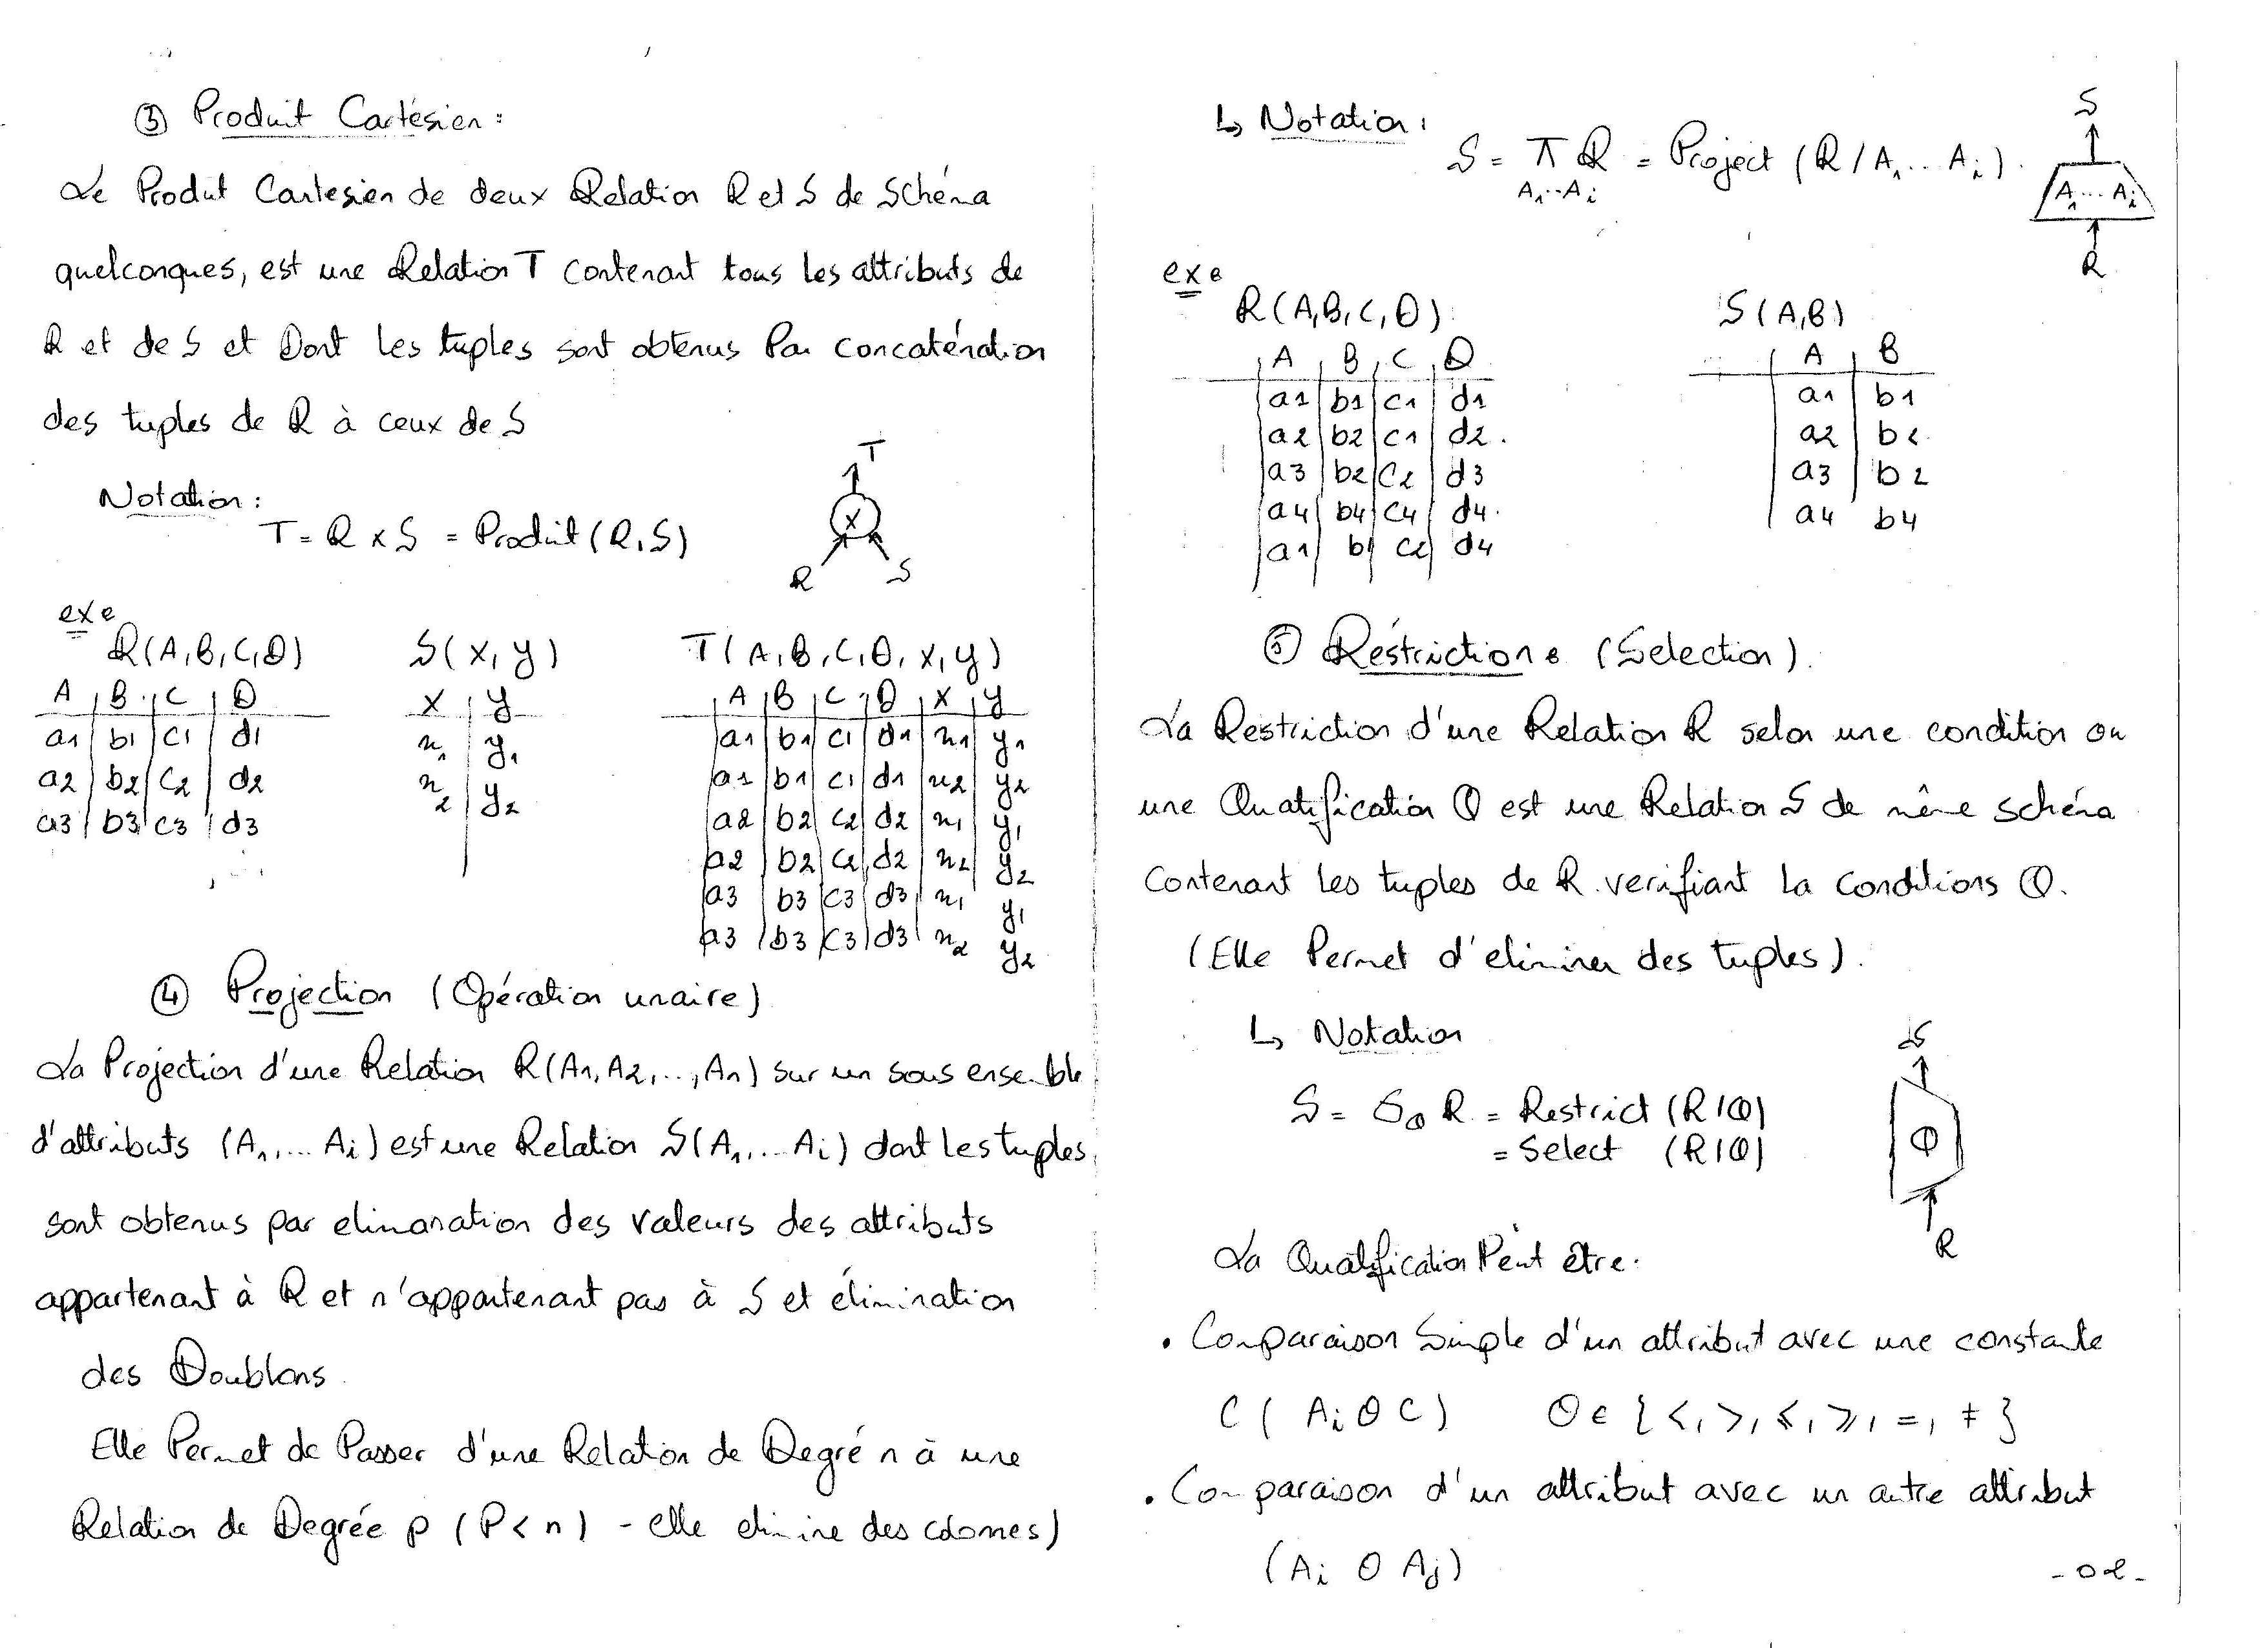 ③ Produit Cartésien :
Le Produt Cartesien de deux Relation R et S de Schéma
quelconques, est une Relation T contenant tous les attributs de
R et de S et Dont les tuples sont obtenus Par concaténation
des tuples de R à ceux de S
Notation :
T = R x S = Produit (R, S)
T
X
R S
exe
R(A, B, C, D) S(X, Y) T(A, B, C, D, X, Y)
A B C D
a1 b1 c1 d1
a2 b2 c2 d2
a3 b3 c3 d3
X Y
x1 y1
x2 y2
A B C D X Y
a1 b1 c1 d1 x1 y1
a1 b1 c1 d1 x2 y2
a2 b2 c2 d2 x1 y1
a2 b2 c2 d2 x2 y2
a3 b3 c3 d3 x1 y1
a3 b3 c3 d3 x2 y2
④ Projection (Opération unaire)
La Projection d'une Relation R(A1, A2, .., An) sur un sous ensemble
d'attributs (A1, ... Ai) est une Relation S(A1, ... Ai) dont les tuples
sont obtenus par elimanation des valeurs des attributs
appartenant à R et n'appartenant pas à S et élimination
des Doublons.
Elle Permet de Passer d'une Relation de Degré n à une
Relation de Degrée p (P < n) - elle elimine des colomes)
↳ Notation :
S = π R = Project (R / A1 ... Ai).
A1 .. Ai
S
A1 ... Ai
R
exe
R(A, B, C, D) S(A, B)
A B C D
a1 b1 c1 d1
a2 b2 c1 d2
a3 b2 c2 d3
a4 b4 c4 d4
a1 b1 c2 d4
A B
a1 b1
a2 b2
a3 b2
a4 b4
⑤ Réstriction : (Selection).
La Restriction d'une Relation R selon une condition ou
une Qualification Q est une Relation S de même schéma
contenant les tuples de R verifiant la conditions Q.
(Elle Permet d'eliminer des tuples).
↳ Notation
S = σQ R = Restrict (R/Q)
= Select (R/Q)
S
Q
R
La Qualification Peut être.
• Comparaison Simple d'un attribut avec une constante
C (Ai θ C) θ ∈ {<, >, ≤, ≥, =, ≠}
• Comparaison d'un attribut avec un autre attribut
(Ai θ Aj)
- 02 -